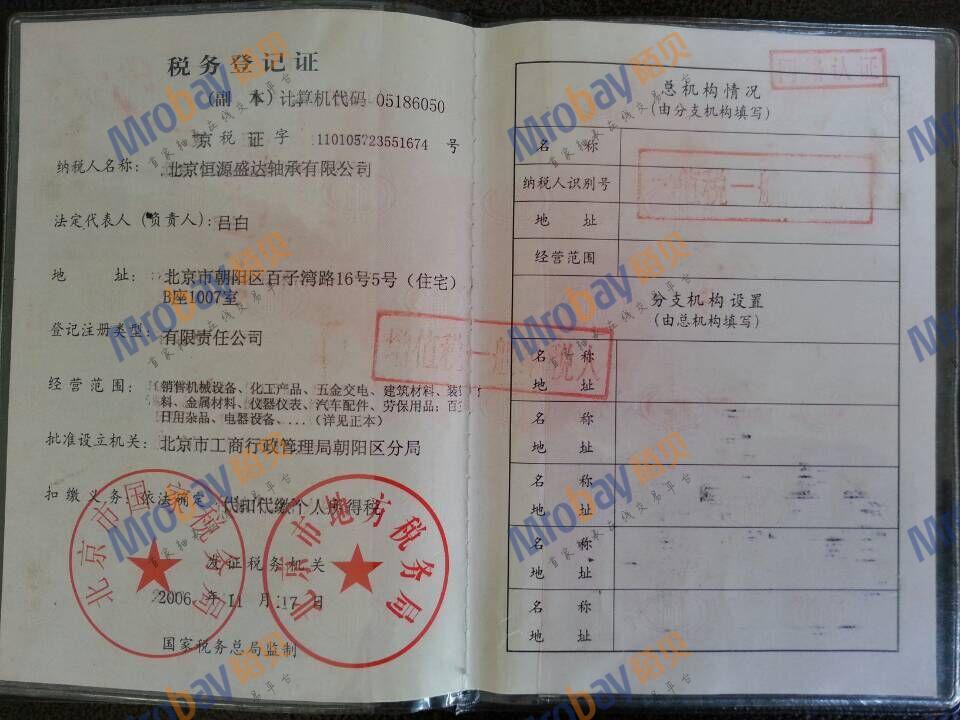 税务登记证
(副 本)计算机代码 05186050
京 税 证 字 110105723551674 号
纳税人名称: 北京恒源盛达轴承有限公司
法定代表人(负责人): 吕白
地 址: 北京市朝阳区百子湾路16号5号(住宅)
B座1007室
登记注册类型: 有限责任公司
经营范围: 销售机械设备、化工产品、五金交电、建筑材料、装
料、金属材料、仪器仪表、汽车配件、劳保用品;百
日用杂品、电器设备、...(详见正本)
批准设立机关: 北京市工商行政管理局朝阳区分局
扣缴义务: 依法确定 代扣代缴个人所得税
北京市国家税务局
北京市地方税务局
发证税务机关
2006 年 11 月 17 日
国家税务总局监制
总机构情况
(由分支机构填写)
名 称
纳税人识别号
地 址
经营范围
分支机构设置
(由总机构填写)
名 称
地 址
名 称
地 址
名 称
地 址
名 称
地 址
名 称
地 址
增值税一般纳税人
增值税一般
Mrobay陌贝
首家轴承在线交易平台